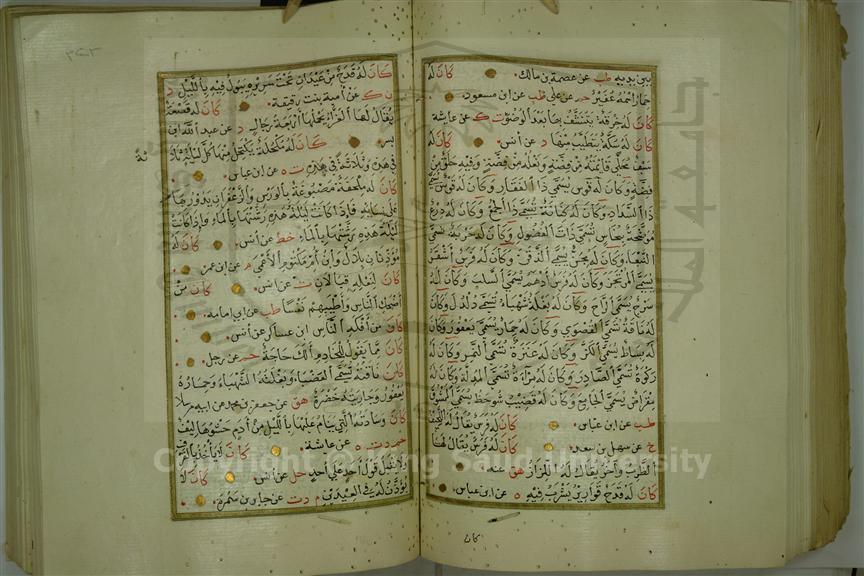 بين يديه طب عن عصمة بن مالك. كان له
حمار اسمه عفير حم عن علي طب عن ابن مسعود.
كان له خرقة يتنشف بها بعد الوضوء ت ك عن عائشة
كان له سكة يتطيب منها د عن أنس. كان له
سيف محلى قائمته من فضة ونعله من فضة وفيه حلق من
فضة وكان له قوس يسمى ذا الفقار وكان له قوس يسمى
ذا السداد وكان له كنانة تسمى ذا الجمع وكان له درع
موشحة بنحاس تسمى ذات الفضول وكان له حربة تسمى
النبعاء وكان له مجن يسمى الذقن وكان له فرس أشقر
يسمى المرتجز وكان له فرس أدهم يسمى السكب وكان له
سرج يسمى الداج وكان له بغلة شهباء تسمى دلدل وكان
له ناقة تسمى القصوى وكان له حمار يسمى يعفور وكان
له بساط يسمى الكز وكان له عنزة تسمى النمر وكان له
ركوة تسمى الصادر وكان له مرآة تسمى المدلة وكان له
مقراض يسمى الجامع وكان له قضيب شوحط يسمى الممشوق
طب عن ابن عباس. كان له فرس يقال له اللحيف
خ عن سهل بن سعد. كان له فرس يقال لها
الظرب وآخر يقال له اللزاز هق عنه.
كان له قدح قوارير يشرب فيه ه عن ابن عباس.
كان
كان له قدح من عيدان تحت سريره يبول فيه بالليل د
ن ك عن أميمة بنت رقيقة. كان له قصعة
يقال لها الغراء يحملها أربعة رجال د عن عبد الله ابن
بسر. كان له مكحلة يكتحل منها كل ليلة ثلاثة
في هذه وثلاثة في هذه ت ه عن ابن عباس.
كان له ملحفة مصبوغة بالورس والزعفران يدور بها
على نسائه فإذا كانت ليلة هذه رشتها بالماء وإذا كانت
ليلة هذه رشتها بالماء خط عن أنس. كان له
مؤذنان بلال وابن أم مكتوم الأعمى م عن ابن عمر
كان لنعله قبالان ت عن أنس. كان من
أضحك الناس وأطيبهم نفسا طب عن أبي أمامة.
كان من أفكه الناس ابن عساكر عن أنس.
كان مما يقول للخادم ألك حاجة حم عن رجل.
كان ناقته تسمى العضباء وبغلته الشهباء وحماره
يعفور وجاريته خضرة هق عن جعفر بن محمد عن أبيه مرسلا
كان وسادته التي ينام عليها بالليل من أدم حشوها ليف
حم د ت ه عن عائشة. كان لا يأخذ بالقرف
ولا يقبل قول أحد على أحد حل عن أنس. كان لا
يؤذن له في العيدين م د ت عن جابر بن سمرة.
Copyright © King Saud University